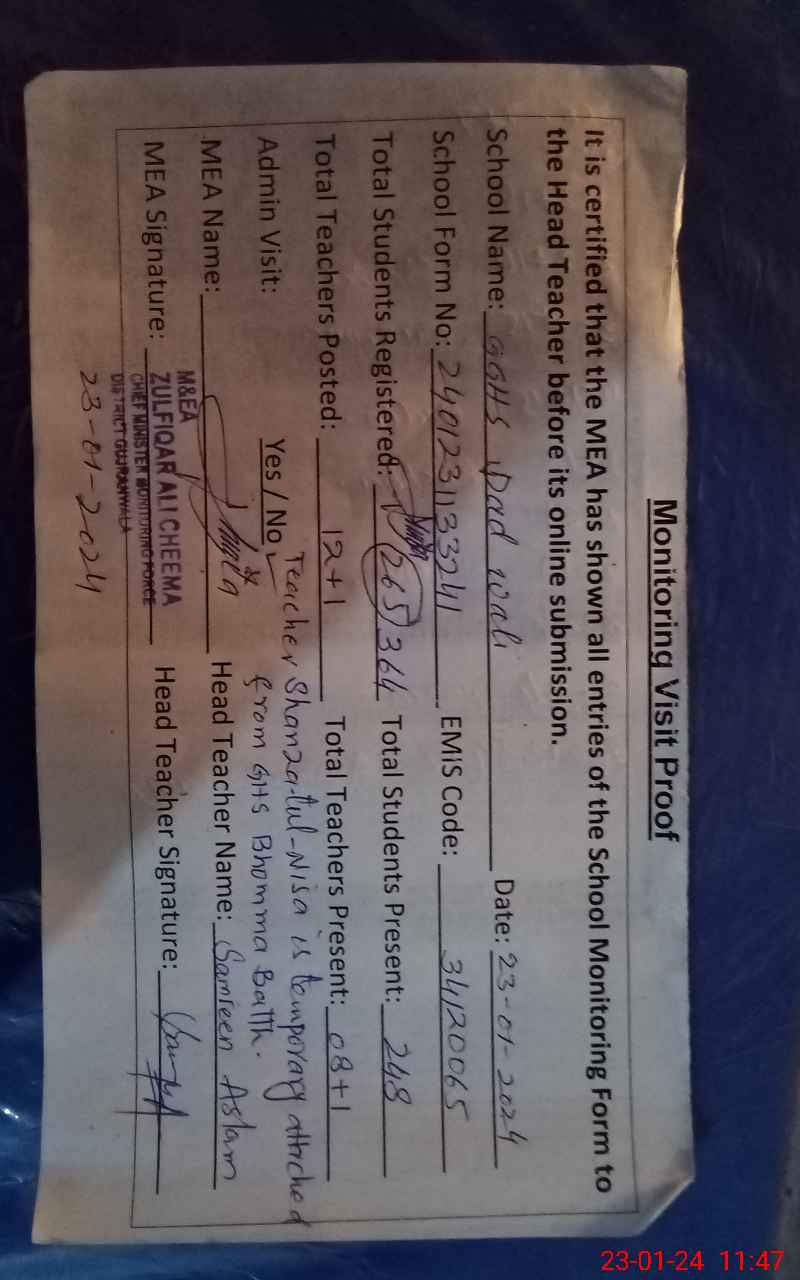 Monitoring Visit Proof
It is certified that the MEA has shown all entries of the School Monitoring Form to
the Head Teacher before its online submission.
School Name: GGHS Dad Wali Date: 23-01-2024
School Form No: 24012311333241 EMIS Code: 34120065
Total Students Registered: 265 364 Total Students Present: 248
Total Teachers Posted: 12+1 Total Teachers Present: 08+1
Admin Visit: Yes / No Teacher Shanza-tul-Nisa is temporary attiched
from GHS Bhomma Batth.
MEA Name: Head Teacher Name: Samreen Aslam
MEA Signature: Head Teacher Signature:
M&EA
ZULFIQAR ALI CHEEMA
CHIEF MINISTER MONITORING FORCE
DISTRICT GUJRANWALA
23-01-2024
23-01-24 11:47